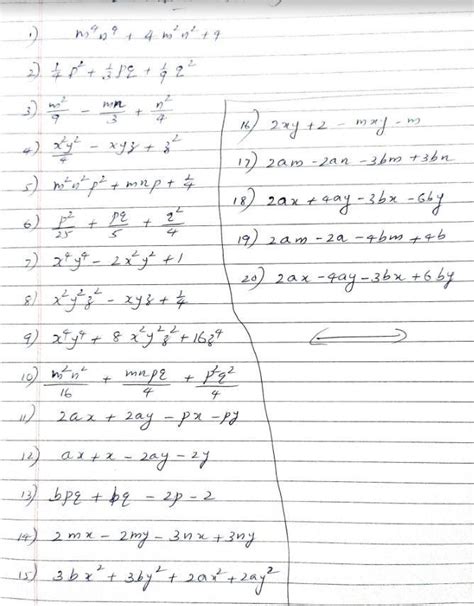 1) m⁴n⁴ + 4m²n² + 9
2) 1/4 p² + 1/3 pq + 1/9 q²
3) m²/9 - mn/3 + n²/4
4) x²y²/4 - xyz + z²
5) m²n²p² + mnp + 1/4
6) p²/25 + pq/5 + q²/4
7) x⁴y⁴ - 2x²y² + 1
8) x²y²z² - xyz + 1/4
9) x⁴y⁴ + 8x²y²z² + 16z⁴
10) m²n²/16 + mnpq/4 + p²q²/4
11) 2ax + 2ay - px - py
12) ax + x - 2ay - 2y
13) bpq + bq - 2p - 2
14) 2mx - 2my - 3nx + 3ny
15) 3bx² + 3by² + 2ax² + 2ay²
16) 2xy + 2 - mxy - m
17) 2am - 2an - 3bm + 3bn
18) 2ax + 4ay - 3bx - 6by
19) 2am - 2a - 4bm + 4b
20) 2ax - 4ay - 3bx + 6by